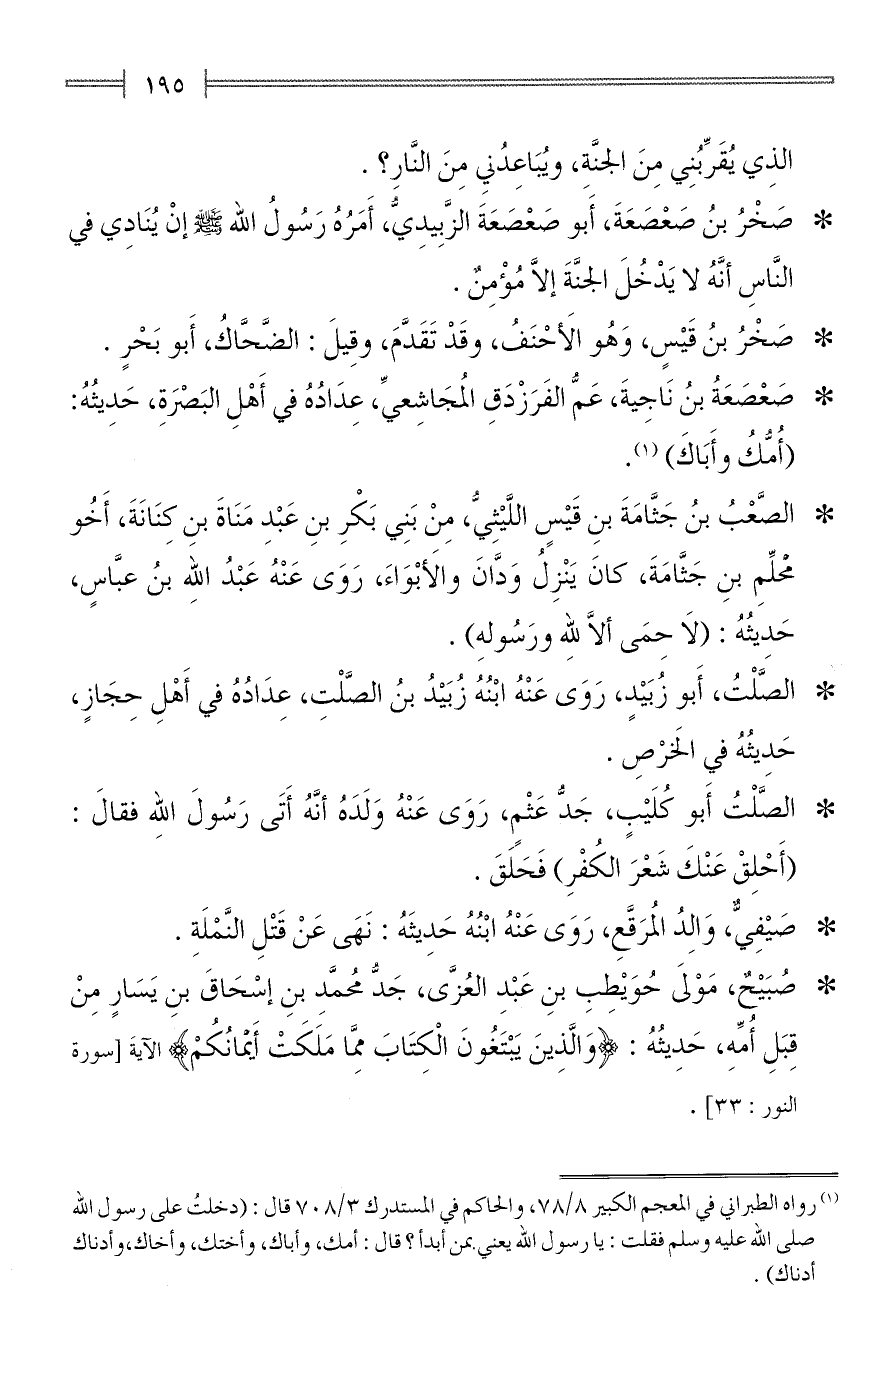 ١٩٥
الذي يُقَرِّبُنِي مِنَ الجنَّةِ، ويُبَاعِدُنِي مِنَ النَّارِ؟ .
* صَخْرُ بنُ صَعْصَعَةَ، أبو صَعْصَعَةَ الزَّبِيديُّ، أَمَرُهُ رَسُولُ اللهِ ﷺ إنْ يُنَادِي في
النَّاسِ أنَّهُ لا يَدْخُلَ الجنَّةَ إلاَّ مُؤْمِنٌ .
* صَخْرُ بنُ قَيْسٍ، وَهُو الأَحْنَفُ، وقَدْ تَقَدَّمَ، وقِيلَ : الضَّحَّاكُ، أَبو بَحْرٍ .
* صَعْصَعَةُ بنُ نَاجِيةَ، عَمُّ الفَرَزْدَقِ المُجَاشعيِّ، عِدَادُهُ في أَهْلِ البَصْرَةِ، حَدِيثُهُ:
(أُمُّكُ وأَبَاكَ) (١).
* الصَّعْبُ بنُ جَثَّامَةَ بنِ قَيْسٍ اللَّيْثِيُّ، مِنْ بَنِي بَكْرِ بنِ عَبْدِ مَنَاةَ بنِ كِنَانَةَ، أَخُو
مُحْلِّمِ بنِ جَثَّامَةَ، كانَ يَنْزِلُ وَدَّانَ والأَبْوَاءَ، رَوَى عَنْهُ عَبْدُ اللهِ بنُ عبَّاسٍ،
حَدِيثُهُ : (لاَ حِمَى ألاَّ للهِ ورَسُولِهِ) .
* الصَّلْتُ، أَبو زُبَيْدٍ، رَوَى عَنْهُ ابْنُهُ زُبَيْدُ بنُ الصَّلْتِ، عِدَادُهُ في أَهْلِ حِجَازٍ،
حَدِيثُهُ في الخَرْصِ .
* الصَّلْتُ أَبو كُلَيْبٍ، جَدُّ عَثْمٍ، رَوَى عَنْهُ وَلَدَهُ أنَّهُ أَتَى رَسُولَ اللهِ فقالَ :
(أَحْلِقْ عَنْكَ شَعْرَ الكُفْرِ) فَحَلَقَ .
* صَيْفِيٌّ، وَالِدُ المُرَقَّعِ، رَوَى عَنْهُ ابْنُهُ حَدِيثَهُ : نَهَى عَنْ قَتْلِ النَّمْلَةِ .
* صُبَيْحٌ، مَوْلَى حُوَيْطِبِ بنِ عَبْدِ العُزَّى، جَدُّ مُحمَّدِ بنِ إسْحَاقَ بنِ يَسَارٍ مِنْ
قِبَلِ أُمِّهِ، حَدِيثُهُ : ﴿وَالَّذِينَ يَبْتَغُونَ الْكِتَابَ مِمَّا مَلَكَتْ أَيْمَانُكُمْ﴾ الآيةَ [سورة
النور : ٣٣] .
(١) رواه الطبراني في المعجم الكبير ٧٨/٨، والحاكم في المستدرك ٧٠٨/٣ قال : (دخلتُ على رسول الله
صلى الله عليه وسلم فقلت : يا رسول الله يعني بمن أبدأ ؟ قال : أمك، وأباك، وأختك، وأخاك، وأدناك
أدناك) .